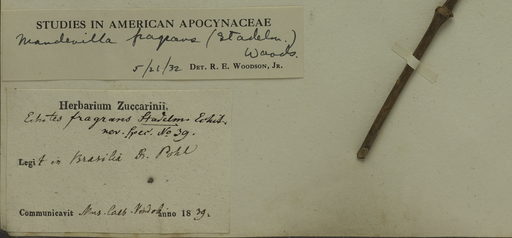 STUDIES IN AMERICAN APOCYNACEAE
Mandevilla fragrans (Stadelm.)
Woods.
5/21/32 DET. R. E. WOODSON, JR.
Herbarium Zuccarinii.
Echites fragrans Stadelm.
nov. Spec. No 39.
Legit in Brasilia Dr. Pohl
Communicavit Mus. Caes. anno 1839.